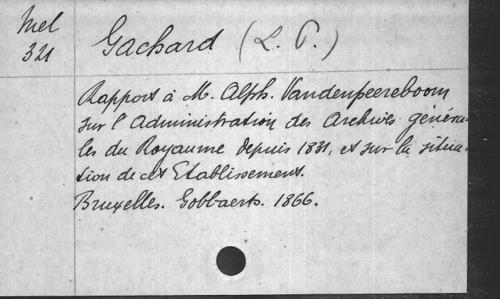 Mel
321
Gachard (L. P.)
Rapport à M. Alph. Vandenpeereboom
sur l'Administration des Archives généra-
les du Royaume depuis 1831, et sur la situa-
tion de cet Etablissement.
Bruxelles. Gobbaerts. 1866.